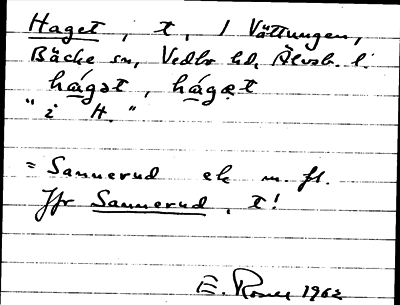 Haget, t, 1 Vättungen,
Bäcke sn, Vedbo hd, Älvsb. l.
hágət, hágæt
"i H."
= Sannerud ek m. fl.
Jfr Sannerud, t!
E. 1962